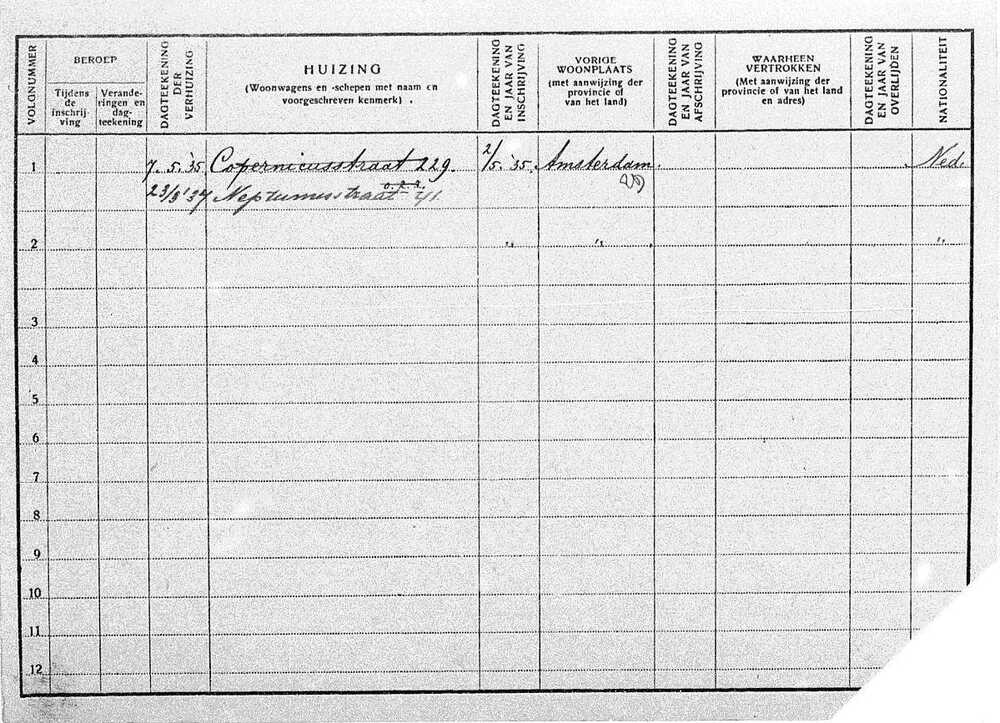 VOLGNUMMER
BEROEP
Tijdens de inschrij- ving
Verande- ringen en dag- teekening
DAGTEEKENING DER VERHUIZING
HUIZING
(Woonwagens en -schepen met naam en
voorgeschreven kenmerk) .
DAGTEEKENING EN JAAR VAN INSCHRIJVING
VORIGE
WOONPLAATS
(met aanwijzing der
provincie of
van het land)
DAGTEEKENING EN JAAR VAN AFSCHRIJVING
WAARHEEN
VERTROKKEN
(Met aanwijzing der
provincie of van het land
en adres)
DAGTEEKENING EN JAAR VAN OVERLIJDEN
NATIONALITEIT
1 7.5.'35 Copernicusstraat 229. 2/5.'35 Amsterdam. Ned.
23/3'37 Neptunusstraat
2 " " "
3
4
5
6
7
8
9
10
11
12